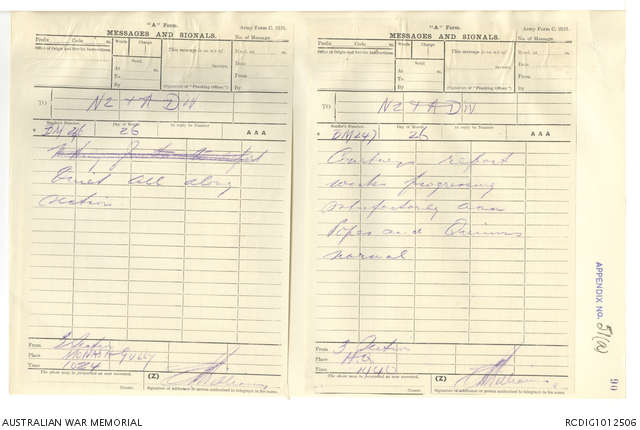 "A" Form.
Army Form C. 2121.
MESSAGES AND SIGNALS.
No. of Message
Prefix Code m.
Office of Origin and Service Instructions.
Words Charge
Sent
At m.
To
By
This message is on a/c of
Service.
(Signature of "Franking Officer.")
Recd. at m.
Date
From
By
TO NZ & A DIV
Sender's Number Day of Month In reply to Number AAA
26
Quiet all along
section
From 3 Section
Place MONASH Gully
Time 1024
The above may be forwarded as now corrected. (Z)
Censor. Signature of Addressor or person authorised to telegraph in his name.
"A" Form.
Army Form C. 2121.
MESSAGES AND SIGNALS.
No. of Message
Prefix Code m.
Office of Origin and Service Instructions.
Words Charge
Sent
At m.
To
By
This message is on a/c of
Service.
(Signature of "Franking Officer.")
Recd. at m.
Date
From
By
TO NZ & A DIV
Sender's Number Day of Month In reply to Number AAA
DM247 26
Courtneys report
works progressing
satisfactorily aaa
Popes and Quinns
normal
From 3 Section
Place HQ
Time 1440
The above may be forwarded as now corrected. (Z)
Censor. Signature of Addressor or person authorised to telegraph in his name.
APPENDIX NO.
90
AUSTRALIAN WAR MEMORIAL
RCDIG1012506